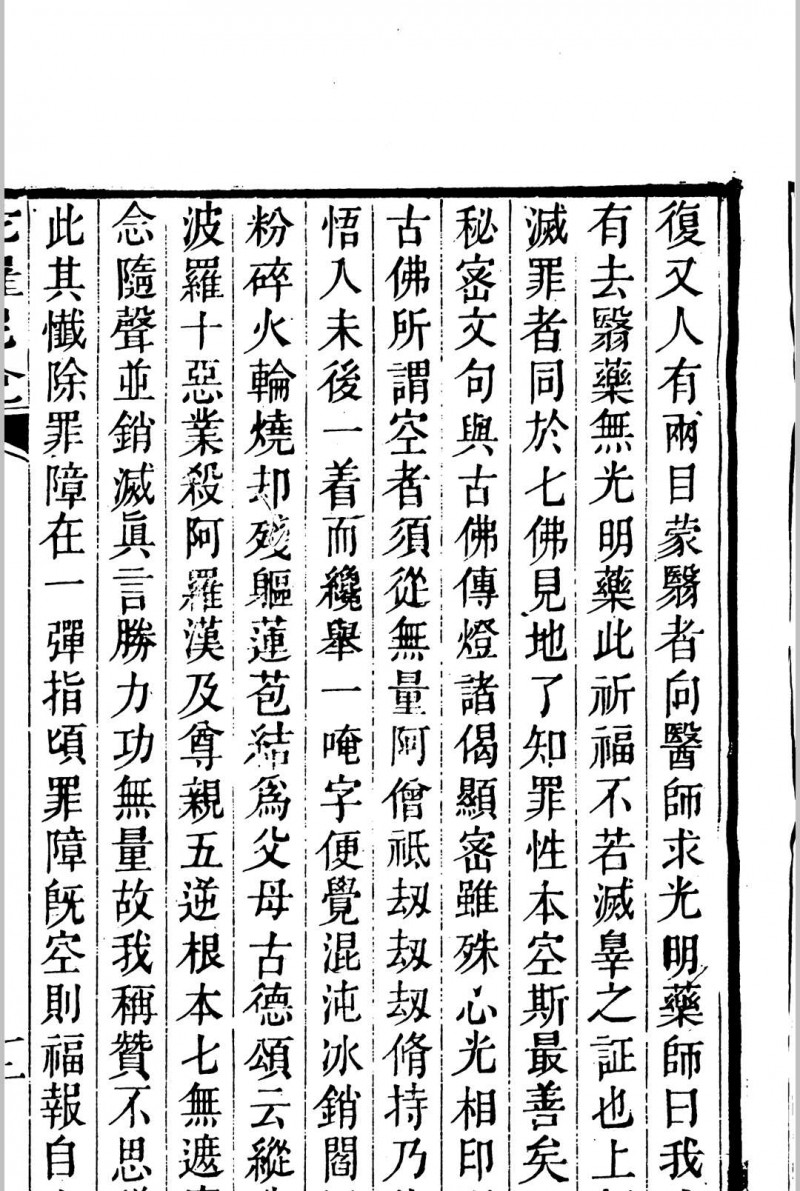 復又人有兩目蒙翳者向醫師求光明藥師曰我
有去翳藥無光明藥此祈福不若滅辠之証也上
滅罪者同於七佛見地了知罪性本空斯最善矣
秘密文句與古佛傳燈諸偈顯密雖殊心光相印
古佛所謂空者須從無量阿僧祗刼刼刼脩持乃
悟入未後一着而纔舉一唵字便覺混沌冰銷閻
粉碎火輪燒却殘軀蓮苞結爲父母古德頌云縱
波羅十惡業殺阿羅漢及尊親五逆根本七無遮
念隨聲並銷滅眞言勝力功無量故我稱贊不思
此其懺除罪障在一彈指頃罪障旣空則福報自